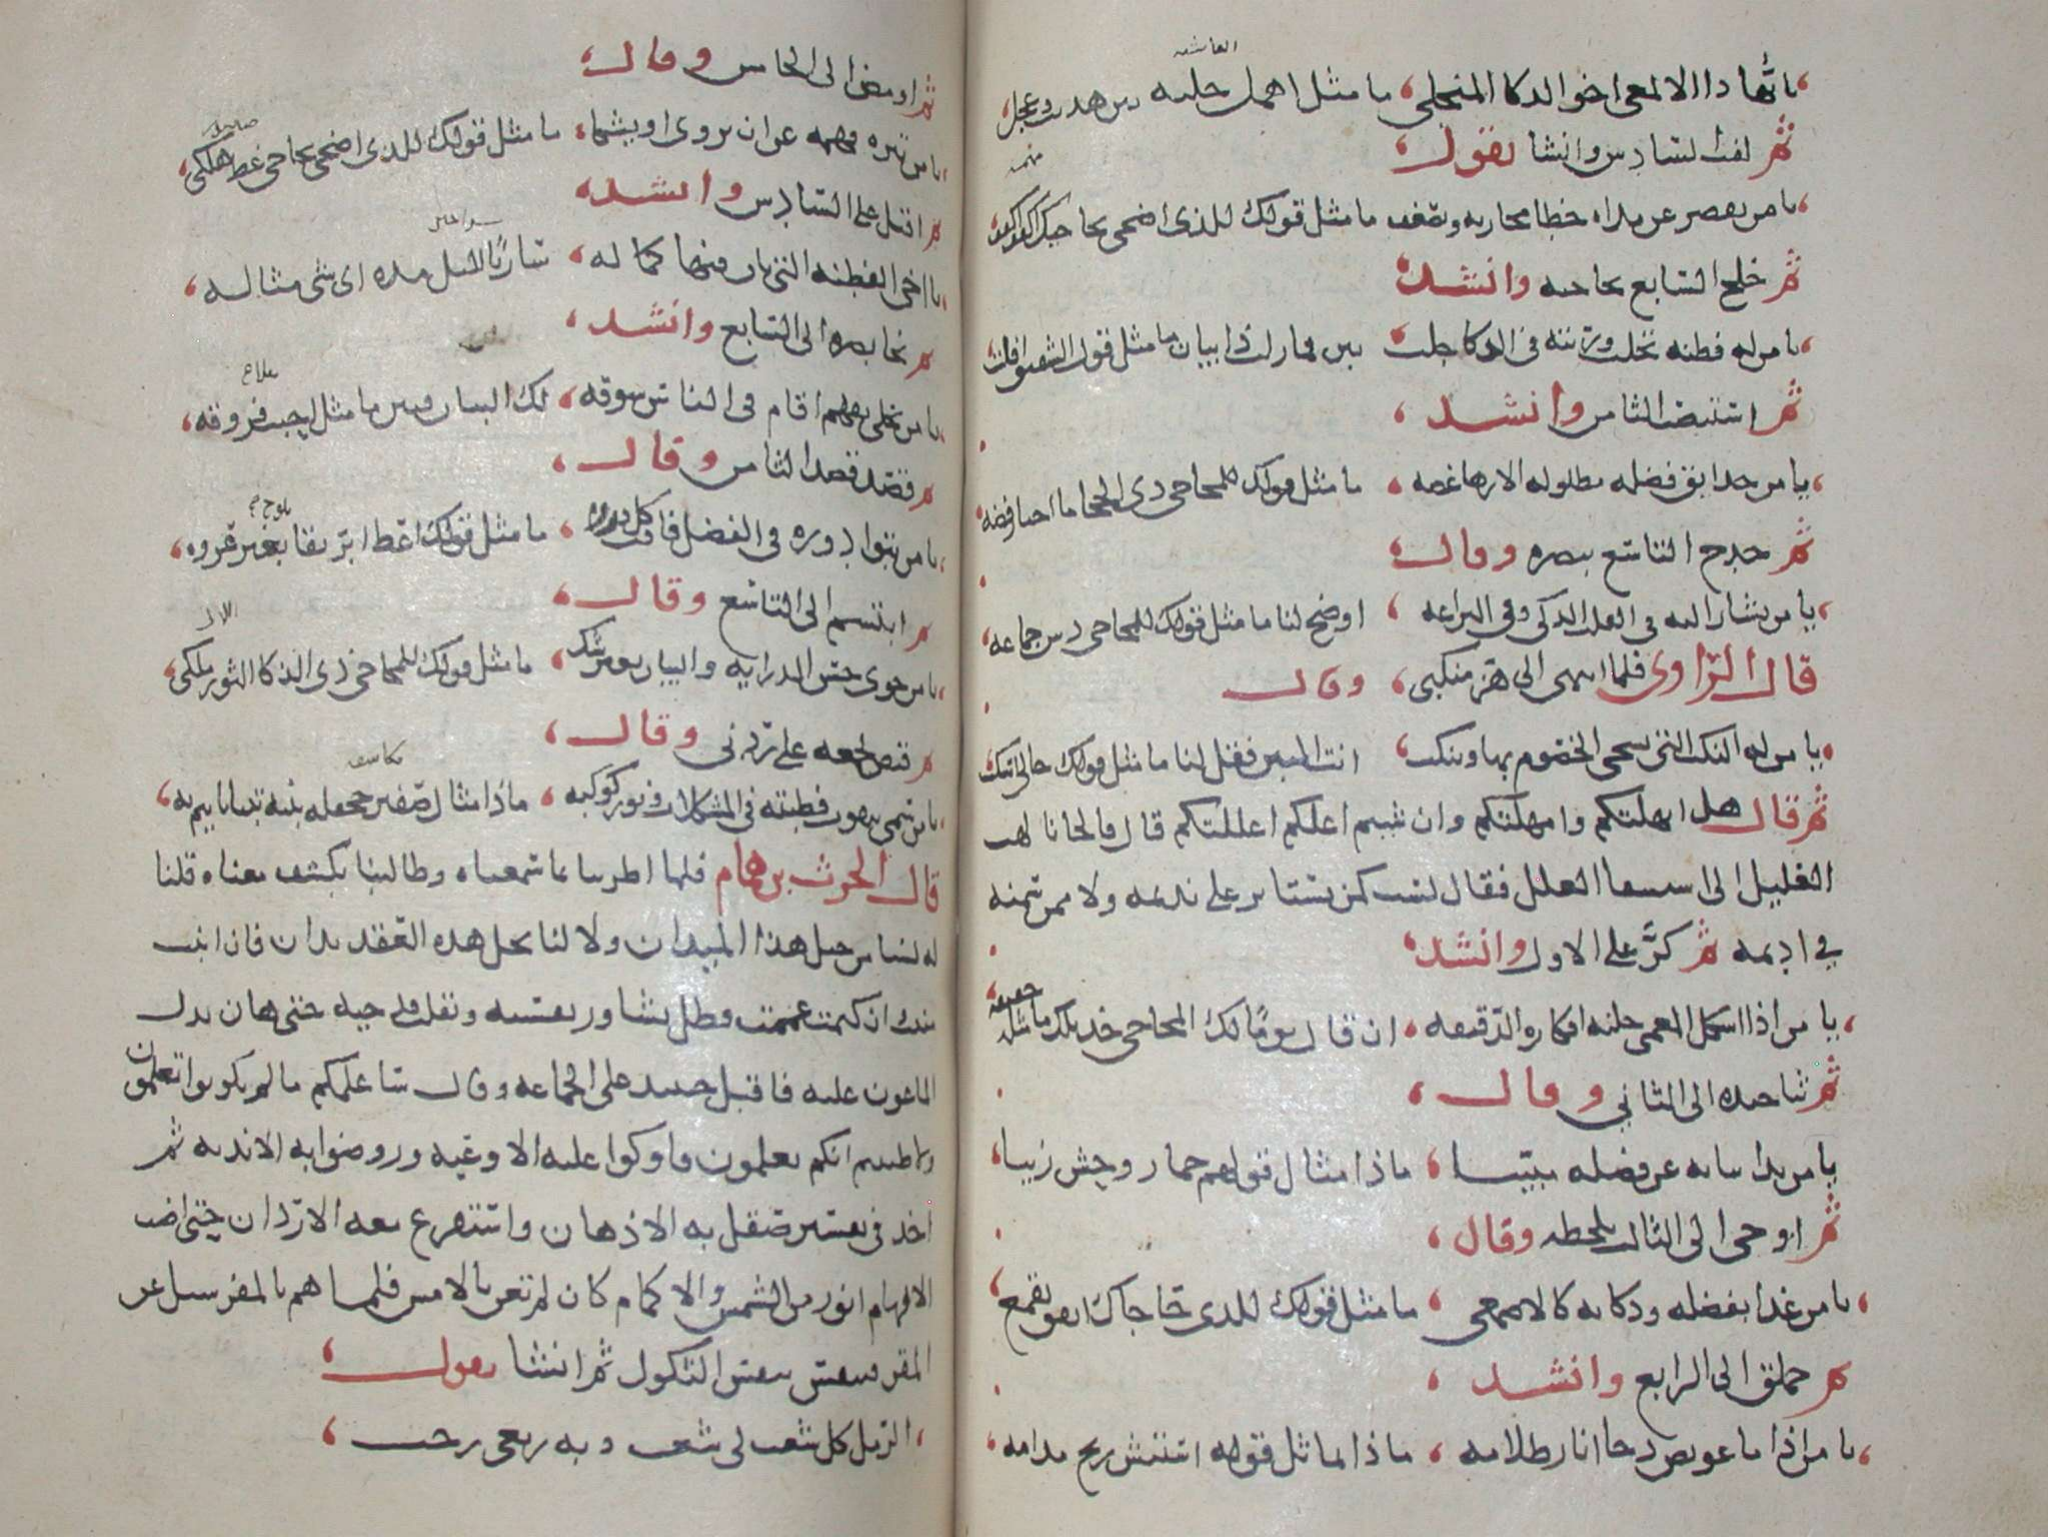 العاشيه
يا ايها ذا الالمعي اخو الذكا المنجلي ما مثل اهمل حليه بين هديت وعجل
ثم لفت السادس وانشا يقول
يا من يقصر عن مداه خطا مجاريه وتضعف ما مثل قولك للذي اضحى يحاجيك اكفف اكفف
ثم خلج السابع بحاجبه وانشد
يا من له فطنة تجلت ورتبة في الذكا جلت بين فما زلت ذا بيان ما مثل قول الشقيق افلت
ثم استنبض الثامن وانشد
يا من حدايق فضله مطلولة الازهار غضه ما مثل قولك للمحاجي ذي الحجا ما اختار فضه
ثم حدج التاسع ببصره وقال
يا من يشار اليه في القلب الذكي وفي البراعه اوضح لنا ما مثل قولك للمحاجي دس جماعه
قال الراوي فلما انتهى الي هز منكبي وقال
يا من له النكت التي يشجي الخصوم بها وينكت انت المبين فقل لنا ما مثل قولك خالي اسكت
ثم قال هل انهلتكم وامهلتكم وان شيتم اعلكم اعللتكم قال فالجانا لهب
الغليل الى استسقا العلل فقال لست كمن يستاثر على نديمه ولا ممن سمنه
في اديمه ثم كر على الاول وانشد
يا من اذا اشكل المعمى جلته افكاره الدقيقه ان قال يوما لك المحاجي خذ تلك ما مثله حقيقه
ثم ثنا جيده الى الثاني وقال
يا من بدا بيانه عن فضله مبينا ماذا مثال قولهم حمار وحش زينا
ثم اوحى الى الثالث بلحظه وقال
يا من غدا بفضله وذكايه كالاصمعي ما مثل قولك للذي حاجاك انفق تقمع
ثم حملق الى الرابع وانشد
يا من اذا ما عويص دجا انار ظلامه ماذا يماثل قوله استنش ريح مدامه
ثم اومض الى الخامس وقال
يا من تنزه فهمه عن ان يروي او يشكا ما مثل قولك للذي اضحى يحاجي غط هلكى
ثم اقبل على السادس وانشد
يا اخي الفطنة التي بان فيها كماله سار بالليل مده اي شي مثاله
ثم نحا بصره الى السابع وانشد
يا من تحلى بفهم اقام في الناس سوقه لك البيان فبين ما مثل احبب فروقه
ثم قصد قصد الثامن وقال
يا من تبوا ذروة في الفضل فاقت كل ذروه ما مثل قولك اعط ابريقا بغير عروه
ثم ابتسم الى التاسع وقال
يا من حوى حسن الدراية والبيان بغير شك ما مثل قولك للمحاجي ذي الذكا الثور ملكي
ثم قبض بجمعه على ردني وقال
يا من سمى بثقوب فطنته في المشكلات ونور كوكبه ماذا مثال صفير جحفلة بينه تبيانا ينم به
قال الحرث بن همام فلما اطربنا بما سمعناه وطالبنا بكشف معناه قلنا
له لسنا من خيل هذا الميدان ولا لنا بحل هذه العقد يدان فان ابنت
مننت ان كتمت غممت فظل يشاور نفسيه ويقلب قدحيه حتى هان بذل
الماعون عليه فاقبل حينيذ على الجماعة وقال ساعلمكم ما لم تكونوا تعلمون
ولا ظننتم انكم تعلمون فاوكوا عليه الاوعيه وروضوا به الانديه ثم
اخذ في تفسير صقل به الاذهان واستفرغ معه الاردان حتى اضت
الافهام انور من الشمس والاكمام كان لم تغن بالامس فلما هم بالمفر سيل عن
المقر فتنفس تنفس الثكول ثم انشا يقول
الزمل كل شعب لي شعب وبه ربعي رحب